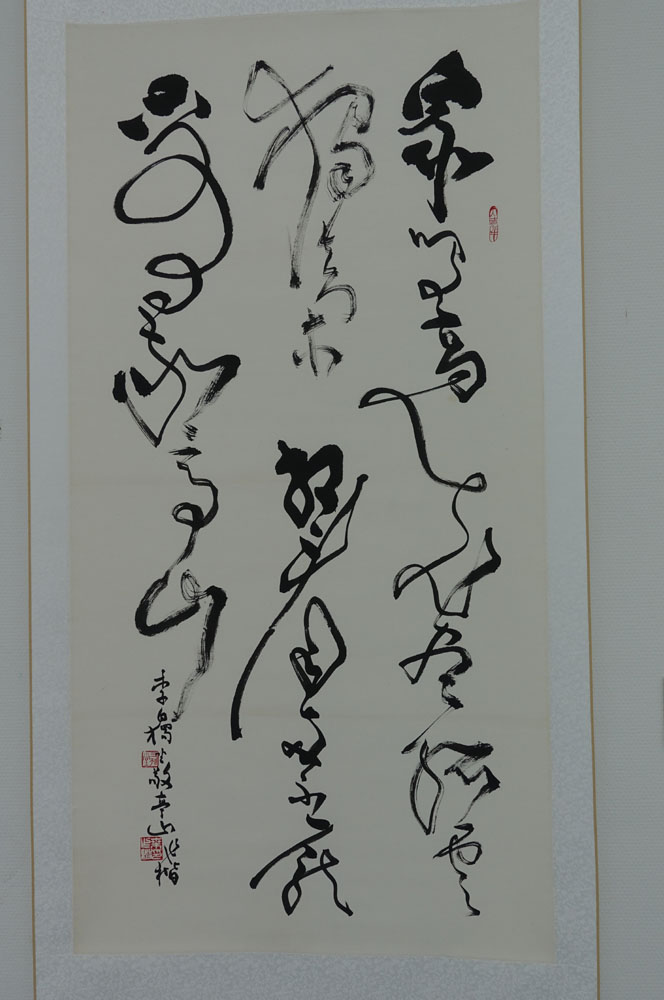 眾鳥高飛盡孤雲
獨去閑相看兩不厭
只有敬亭山
李白獨坐敬亭山